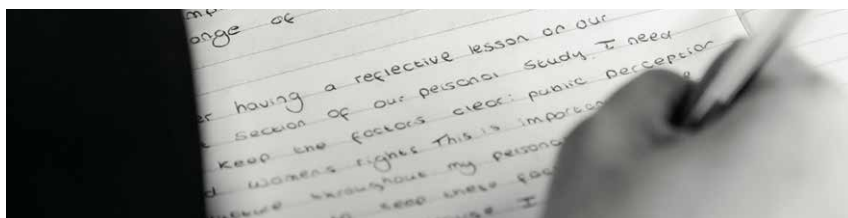 ange of
having a reflective lesson on our
section of our personal study. I need
keep the factors clear: public perception
womens rights This is importan
throughout my persona
keep these fac
I